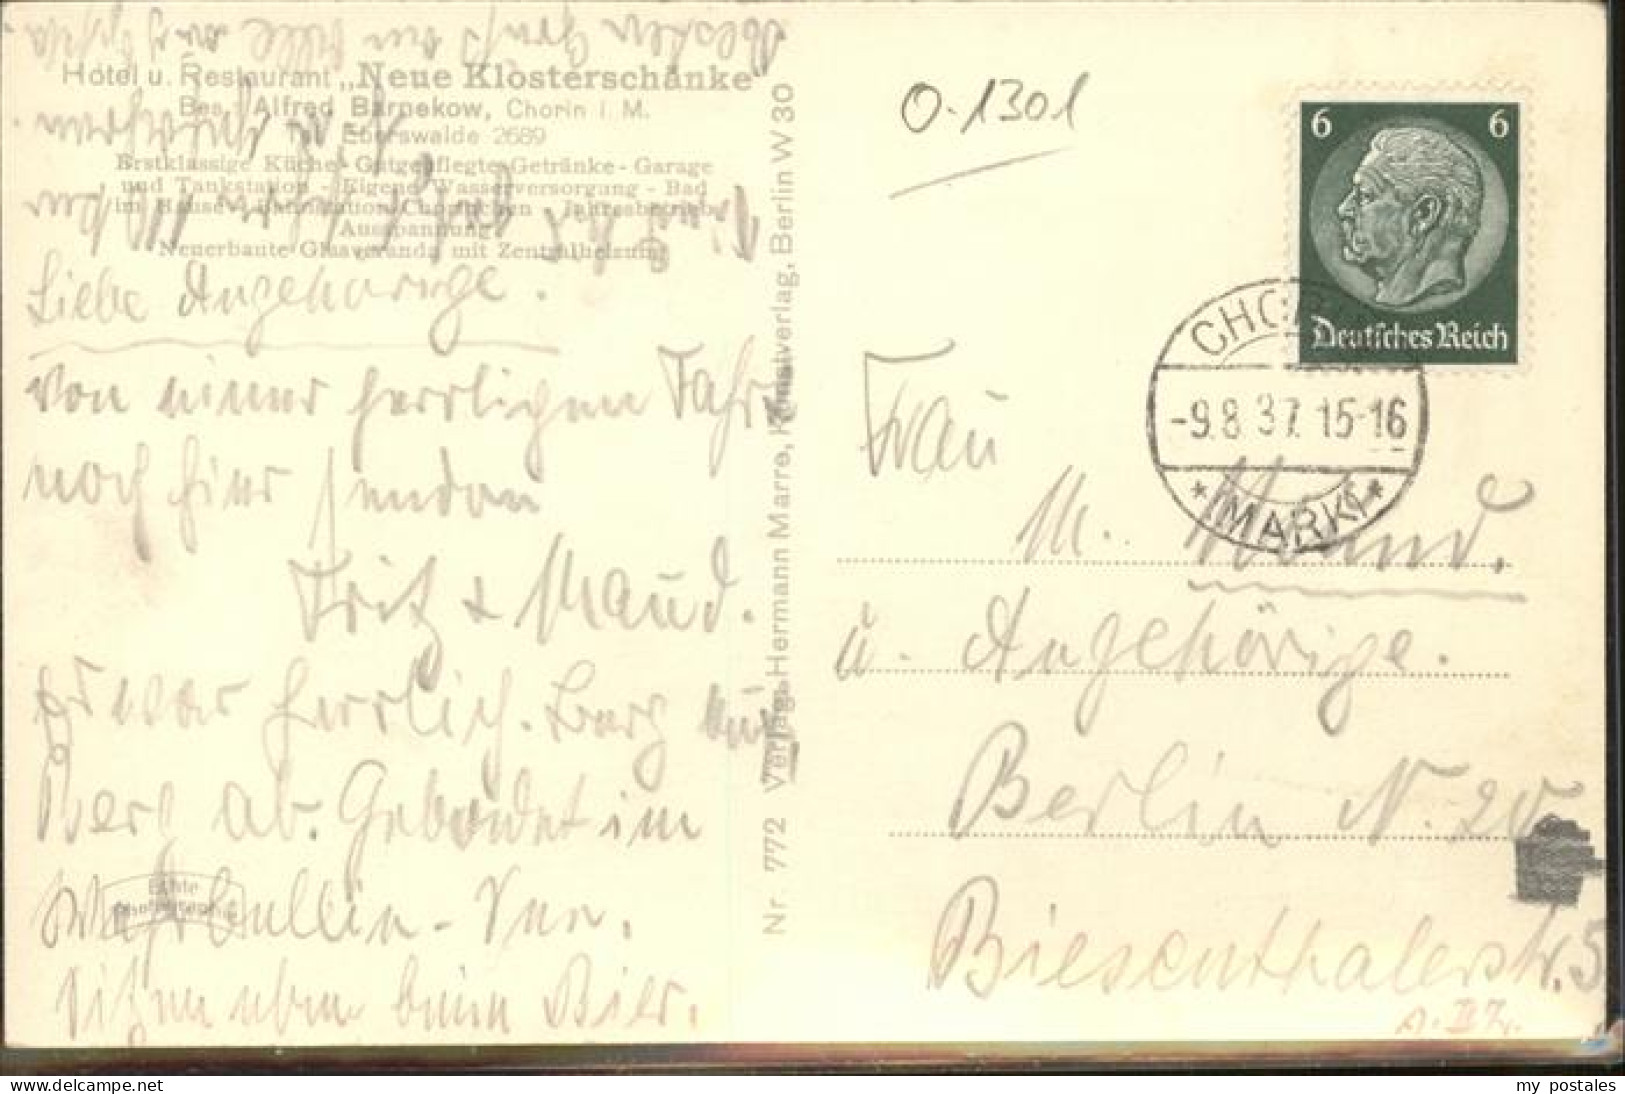 Hotel u. Restaurant „Neue Klosterschänke"
Bes.: Alfred Barnekow, Chorin i. M.
Tel. Eberswalde 2689
Erstklassige Küche - Gutgepflegte Getränke - Garage
und Tankstation - Eigene Wasserversorgung - Bad
im Hause - Bahnstation Chorinchen - Jahresbetrieb
Ausspannung
Neuerbaute Glasveranda mit Zentralheizung
Liebe Angehörige.
Von einer herrlichen Fahrt
noch hier senden
Fritz & Maud.
Es war herrlich. Berg auf
Berg ab. Gebadet im
Werbellin-See.
Sitzen eben beim Bier.
Echte
Photographie
Nr. 772 Verlag Hermann Marre, Kunstverlag, Berlin W 30
O-1301
6 6
Deutsches Reich
CHORIN
-9.8.37.15-16
* (MARK) *
Frau
M.
u. Angehörige.
Berlin N. 20
Biesenthalerstr. 5
my postales